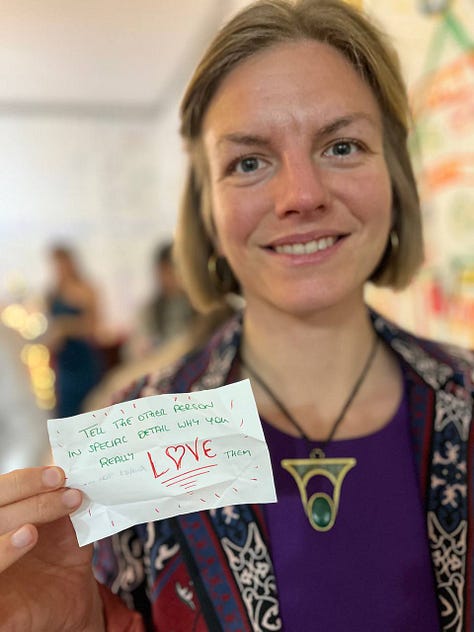 TELL THE OTHER PERSON
IN SPECIAL DETAIL WHY YOU
REALLY LOVE THEM